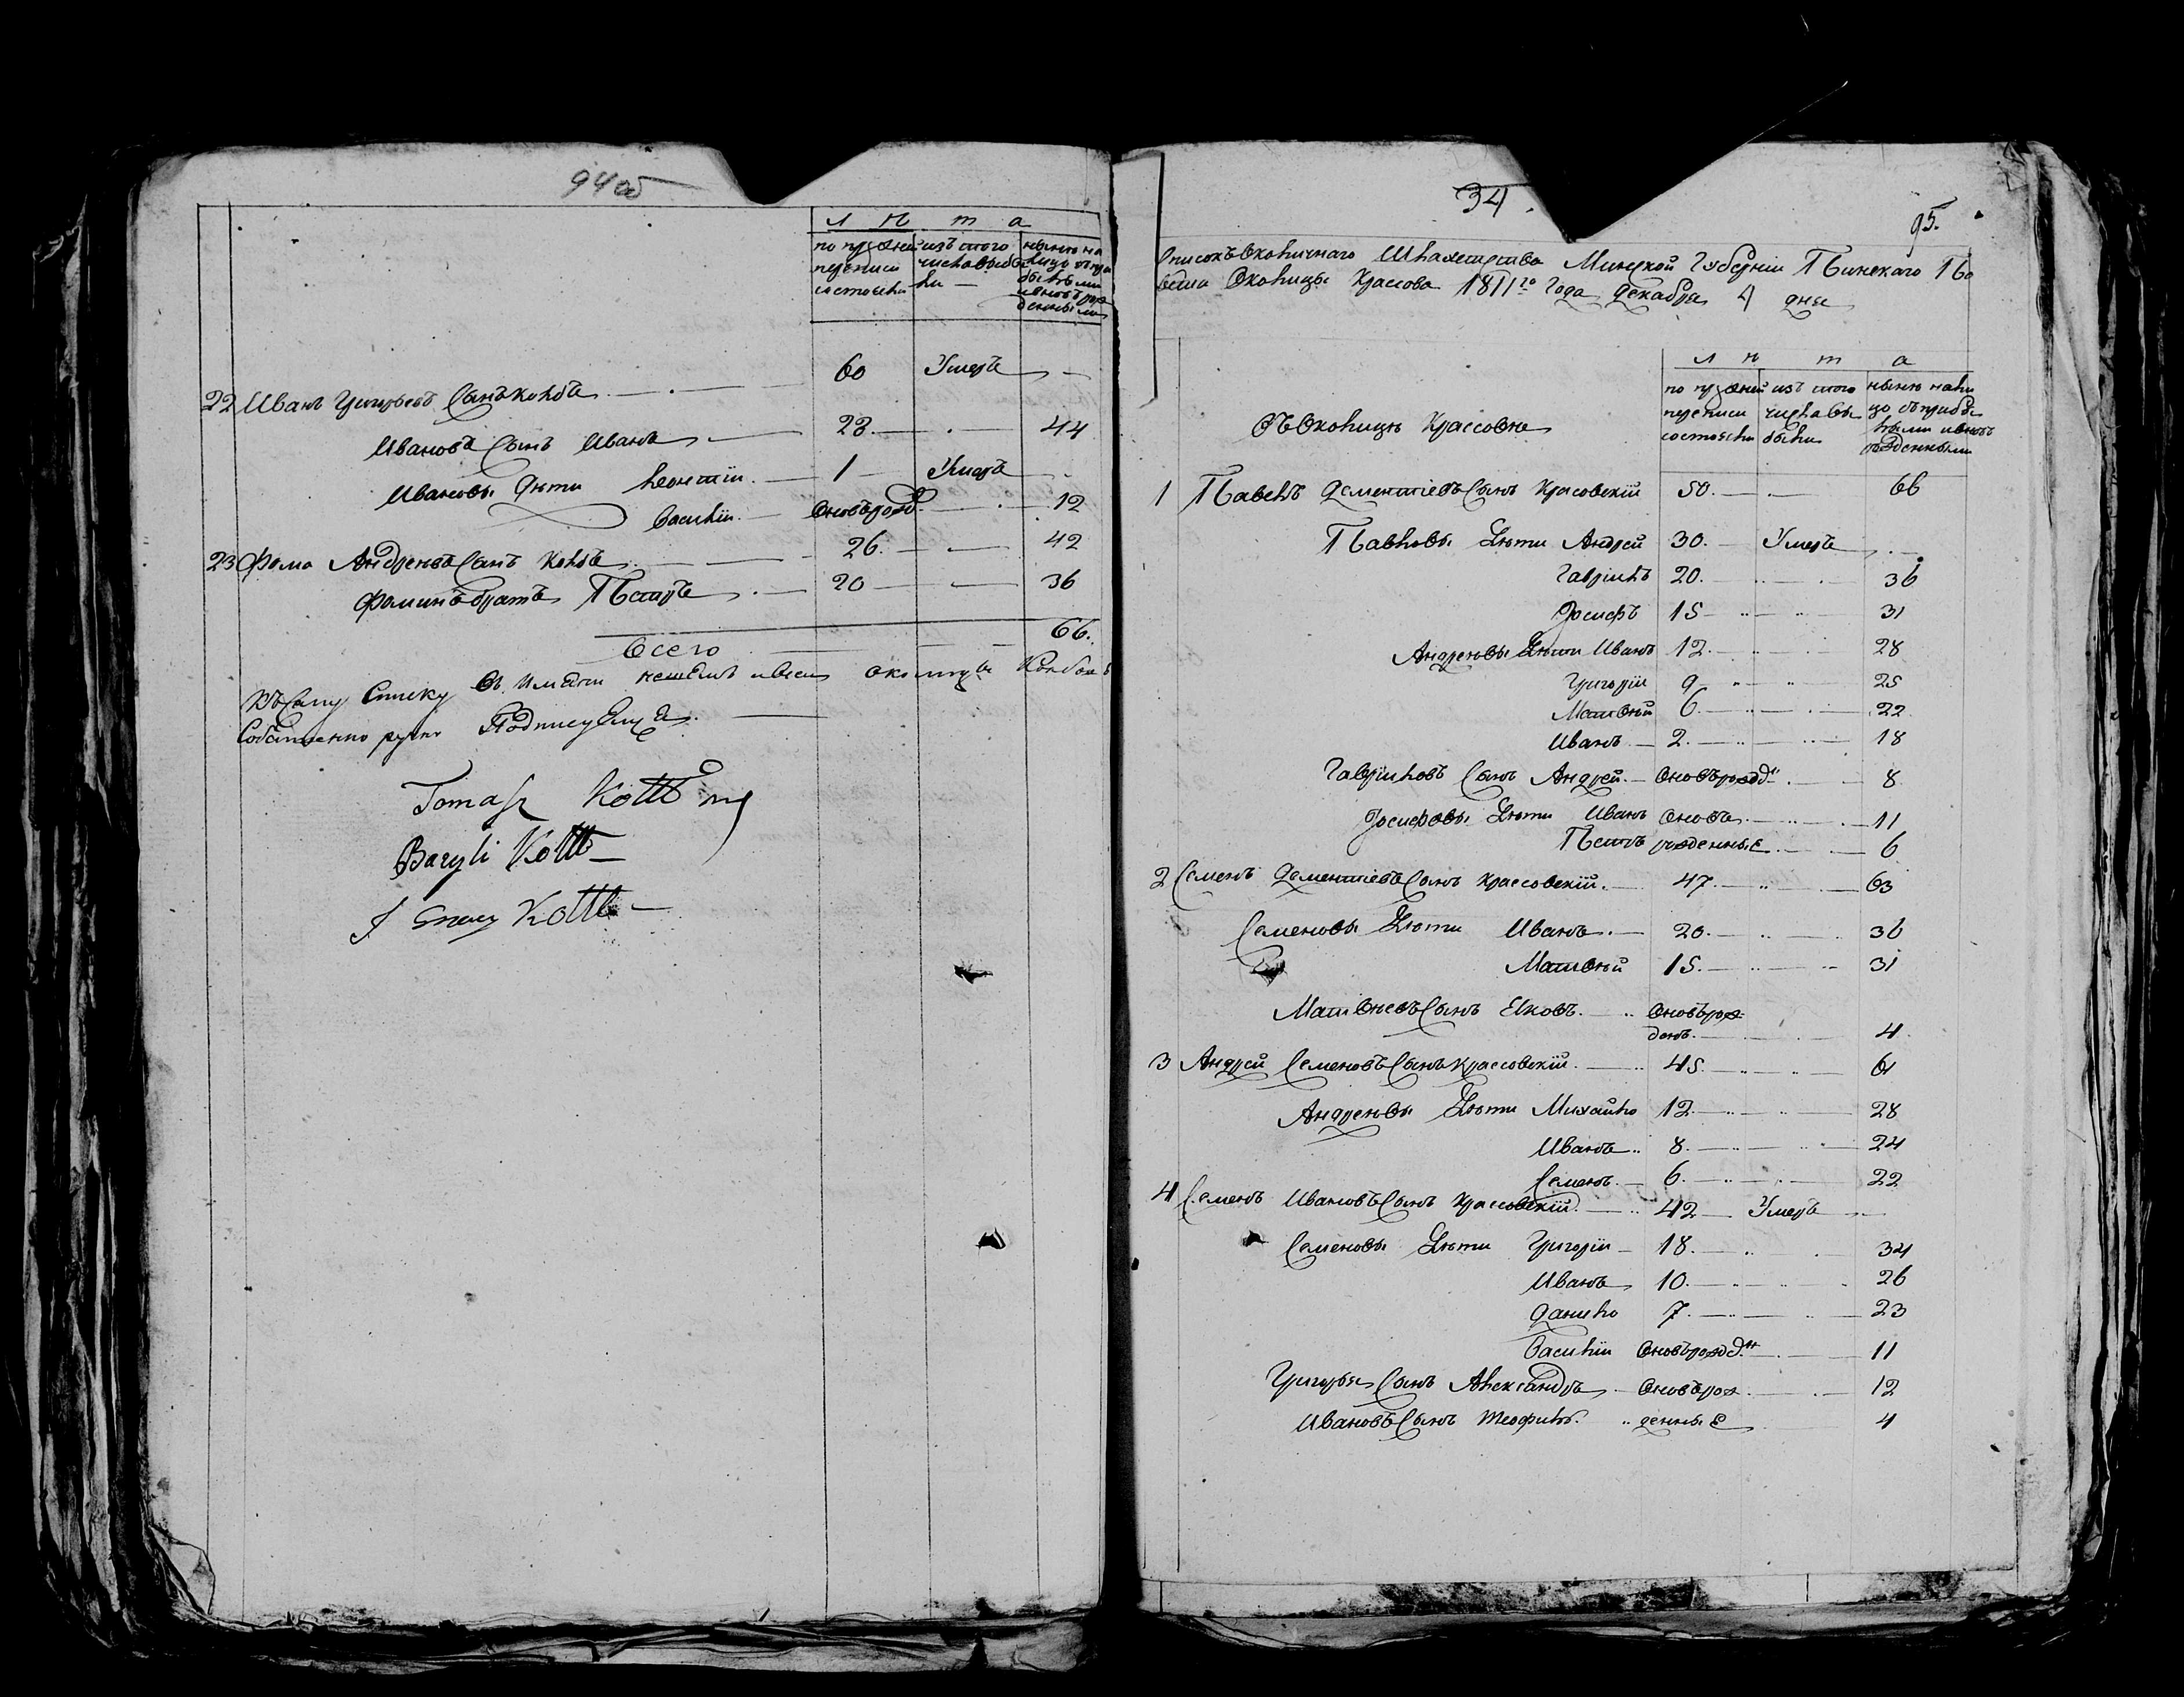 94 об
лѣта
по прежней переписи состояли
изъ того числа выбыли
нынѣ на лицо съ прибылыми и вновь рожденными
22 Иванъ Григорьевъ Сынъ Колбъ 60 Умеръ
Ивановъ Сынъ Иванъ 28 44
Ивановы Дѣти Леонтiй 1 Умеръ
Василiй вновь рожд. 12
23 Фома Андреевъ Сынъ Колбъ 26 42
Фоминъ братъ Петръ 20 36
Всего 66.
Къ Сему Списку въ околицы
Собственно ручно Подписуемся
Tomasz Kołłb
Bazyli Kołłb
Kołłb
34
95.
Списокъ Околичнаго Шляхетства Минской Губернiи Пинскаго По
вета Околицы Крассова 1811го Года Декабря 4 дня
лѣта
Въ Околицѣ Крассовѣ
по прежней переписи состояли
изъ того числа выбыли
нынѣ на лицо съ прибылыми и вновь рожденными
1 Павелъ Дементiевъ Сынъ Красовскiй 50. 66
Павловы Дѣти Андрей 30. Умеръ
Гаврiилъ 20. 36
Iосифъ 15 31
Андреевы Дѣти Иванъ 12. 28
Григорiй 9 25
Матвѣй 6. 22
Иванъ 2. 18
Гаврiиловъ Сынъ Андрей вновь рожд. 8
Iосифовы Дѣти Иванъ вновь 11
Петръ рожденные 6
2 Семенъ Дементiевъ Сынъ Крассовскiй 47. 63
Семеновы Дѣти Иванъ 20. 36
Матвѣй 15. 31
Матвѣевъ Сынъ Яковъ вновь рож
денъ 4
3 Андрей Семеновъ Сынъ Крассовскiй 45. 61
Андреевы Дѣти Михайло 12. 28
Иванъ 8. 24
Семенъ 6. 22
4 Семенъ Ивановъ Сынъ Крассовскiй 42 Умеръ
Семеновы Дѣти Григорiй 18. 34
Иванъ 10. 26
Данило 7. 23
Василiй вновь рожд. 11
Григорья Сынъ Александръ вновь рож 12
Ивановъ Сынъ Теофилъ денные 4